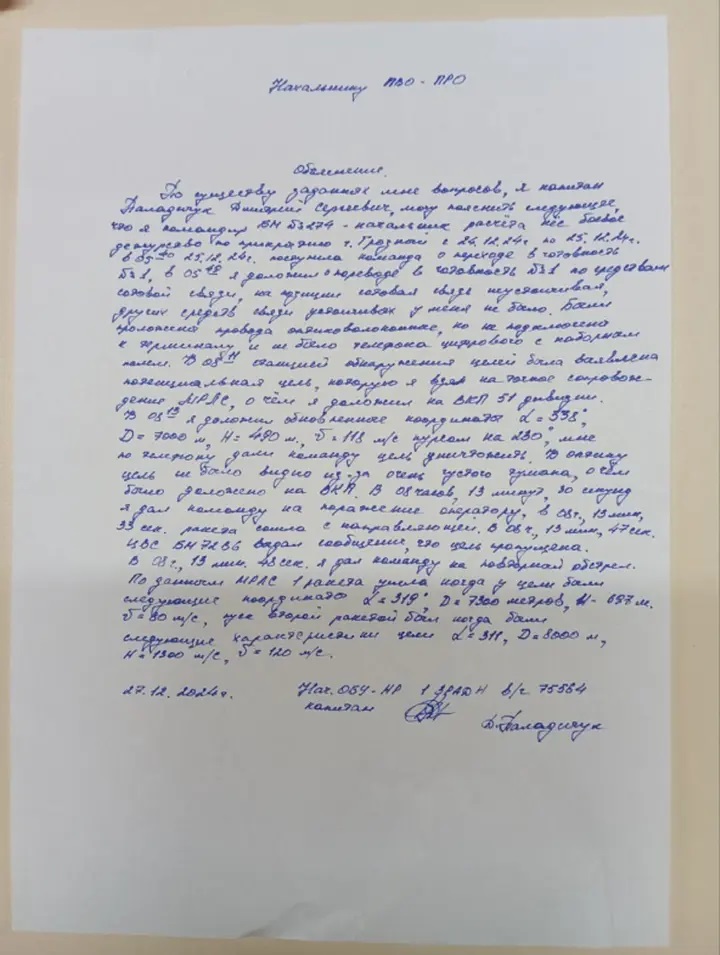 Начальнику ПВО-ПРО
Объяснение.
По существу заданных мне вопросов, я капитан
Паладичук Дмитрий Сергеевич, могу пояснить следующее,
что я командир БМ 73274 - начальник расчёта нёс боевое
дежурство по прикрытию г. Грозный с 24.12.24г. по 25.12.24г.
в 05 25.12.24г. поступила команда о переходе в готовность
№1, в 05 я доложил о переводе в готовность №1 по средствам
сотовой связи, на позиции сотовая связь неустойчивая,
других средств связи устойчивых у меня не было. Были
проложена провода оптиковолоконные, но не подключена
к терминалу и не было телефона цифрового с наборным
полем. В 08 11 станцией обнаружения целей была заявлена
потенциальная цель, которую я взял на точное сопровож-
дение МРЛС, о чём я доложил на ВКП 51 дивизии.
В 08 13 я доложил обновленные координаты α = 338°,
D = 7000 м, H = 490 м, v = 118 м/с курсом на 230°, мне
по телефону дали команду цель уничтожить. В оптику
цель не было видно из-за очень густого тумана, о чём
было доложено на ВКП. В 08 часов, 13 минут, 30 секунд
я дал команду на поражение оператору, в 08ч, 13 мин,
33 сек. ракета сошла с направляющей. В 08ч, 13 мин, 47 сек.
ЦВС БМ 72В6 выдал сообщение, что цель пропущена.
В 08ч, 13 мин. 48 сек. я дал команду на повторный обстрел.
По данным МРЛС 1 ракета ушла когда у цели были
следующие координаты α = 319°, D = 7300 метров, H - 697 м.
v = 80 м/с, пуск второй ракетой был когда были
следующие характеристики цели α = 311, D = 8000 м,
H = 1300 м/с, v = 120 м/с.
27.12.2024г. Нач. ОБУ-НР 1 ЗРАДН в/ч 75564
капитан Д. Паладичук